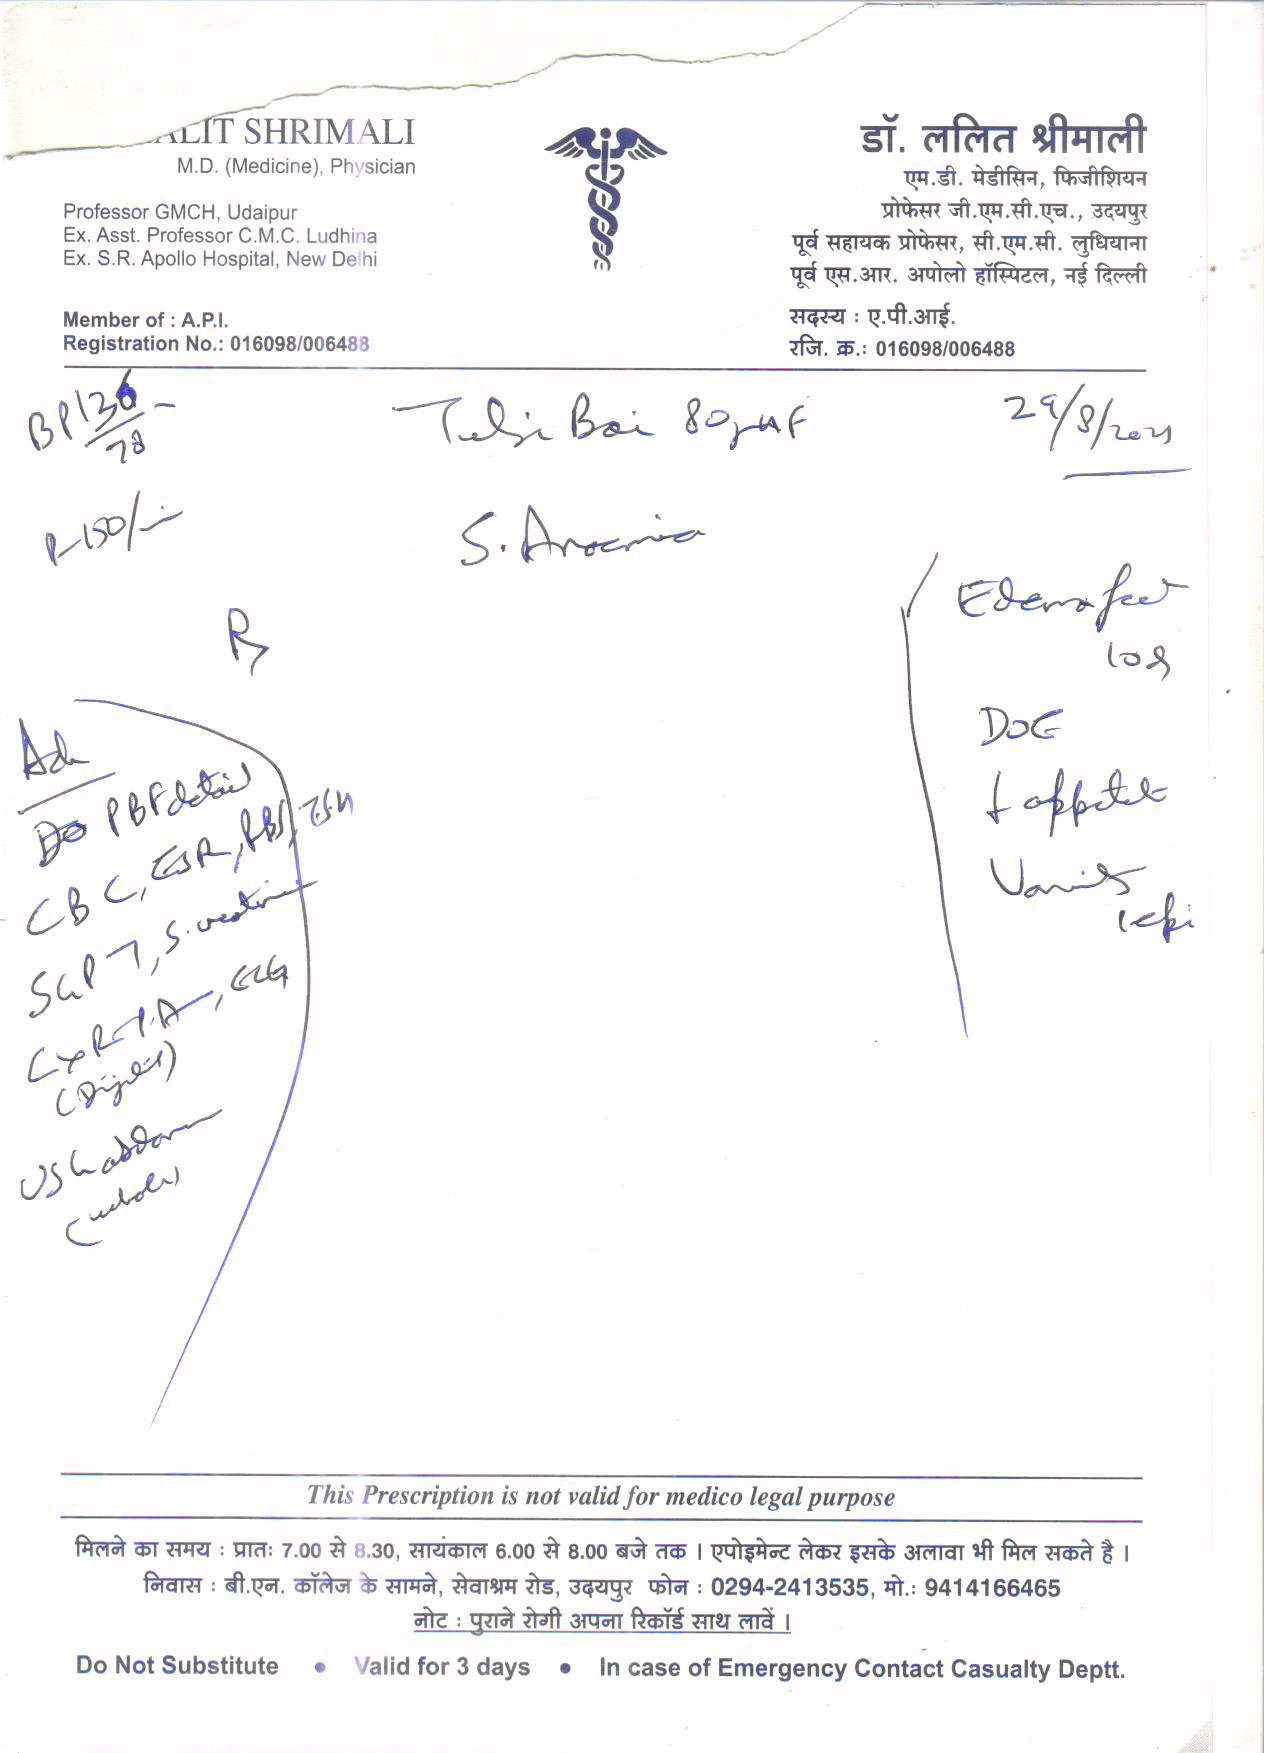 LIT SHRIMALI
M.D. (Medicine), Physician
Professor GMCH, Udaipur
Ex. Asst. Professor C.M.C. Ludhina
Ex. S.R. Apollo Hospital, New Delhi
Member of : A.P.I.
Registration No.: 016098/006488
डॉ. ललित श्रीमाली
एम.डी. मेडीसिन, फिजीशियन
प्रोफेसर जी.एम.सी.एच., उदयपुर
पूर्व सहायक प्रोफेसर, सी.एम.सी. लुधियाना
पूर्व एस.आर. अपोलो हॉस्पिटल, नई दिल्ली
सदस्य : ए.पी.आई.
रजि. क्र.: 016098/006488
BP 136/78
Tulsi Bai 80 F
29/8/2021
P-150/
S. Anaemia
Rx
Edema feet
DOE
↓ appetite
Adv
PBF detail
CBC, ESR, RBS, TSH
SGPT, S. creatinine
CXR-PA, ECG
(Digital)
USG abdomen
(whole)
This Prescription is not valid for medico legal purpose
मिलने का समय : प्रातः 7.00 से 8.30, सायंकाल 6.00 से 8.00 बजे तक । एपोइमेन्ट लेकर इसके अलावा भी मिल सकते है ।
निवास : बी.एन. कॉलेज के सामने, सेवाश्रम रोड, उदयपुर फोन : 0294-2413535, मो.: 9414166465
नोट : पुराने रोगी अपना रिकॉर्ड साथ लावें ।
Do Not Substitute • Valid for 3 days • In case of Emergency Contact Casualty Deptt.